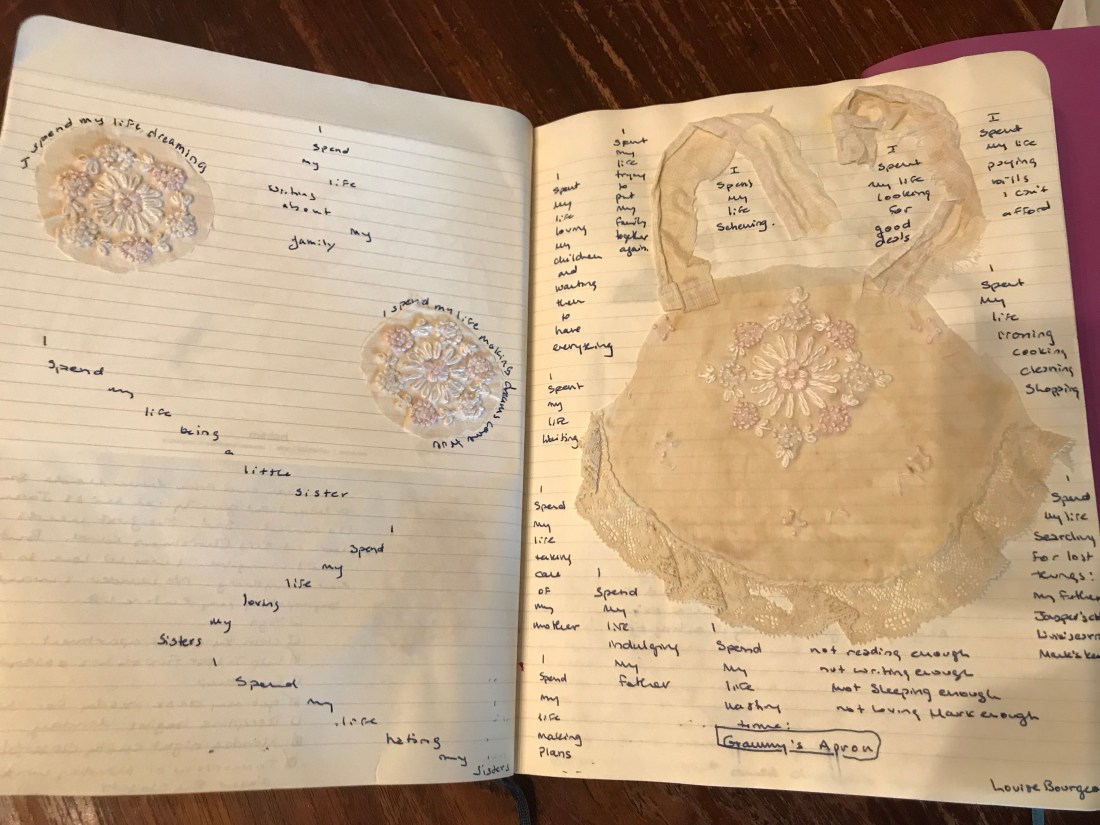 I spend my life dreaming
I
spend
my
life
writing
about
my
family
I spend my life making dreams come true
I
spend
my
life
being
a
little
sister
I
spend
my
life
loving
my
sisters
I
spend
my
life
hating
my
sisters
I
spent
my
life
loving
my
children
and
wanting
them
to
have
everything
I
spent
my
life
trying
to
put
my
family
together
again.
I
Spent
my
life
scheming.
I
spent
my life
looking
for
good
deals
I
spent
my life
paying
bills
I can't
afford
I
spent
my
life
ironing
cooking
cleaning
shopping
I
spent
my
life
waiting
I
spend
my
life
taking
care
of
my
mother
I
spend
my
life
indulging
my
father
I
spend
my life
searching
for lost
things:
my father
I
spend
my
life
making
plans
I
spend
my
life
wasting
time:
not reading enough
not writing enough
not sleeping enough
not loving Mark enough
Grammy's Apron